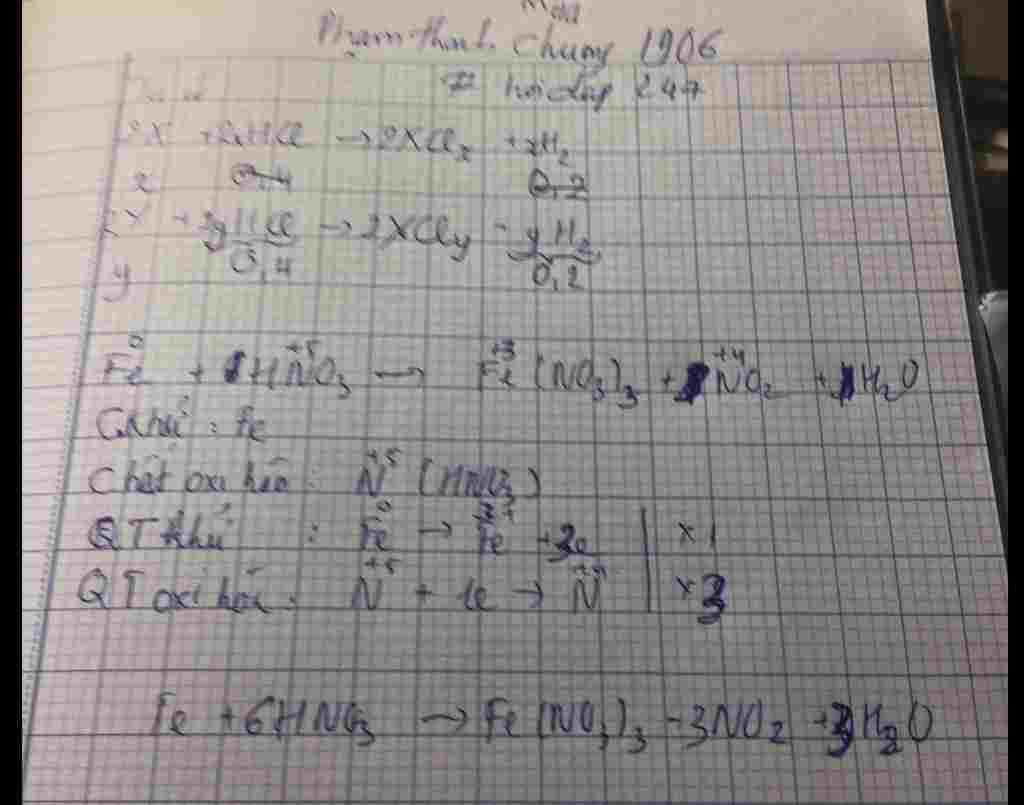 Phạm Thành Chung 1906
# hoidap 247
2X + 2xHCl → 2XClx + xH₂
x 0,4 0,2
2X + 2yHCl → 2XCly + yH₂
y 0,4 0,2
Fe⁰ + HN⁺⁵O₃ → Fe⁺³(NO₃)₃ + N⁺⁴O₂ + H₂O
C khử : Fe
Chất oxi hóa : N⁺⁵ (HNO₃)
QT khử : Fe⁰ → Fe⁺³ + 3e | × 1
QT oxi hóa : N⁺⁵ + 1e → N⁺⁴ | × 3
Fe + 6HNO₃ → Fe(NO₃)₃ + 3NO₂ + 3H₂O